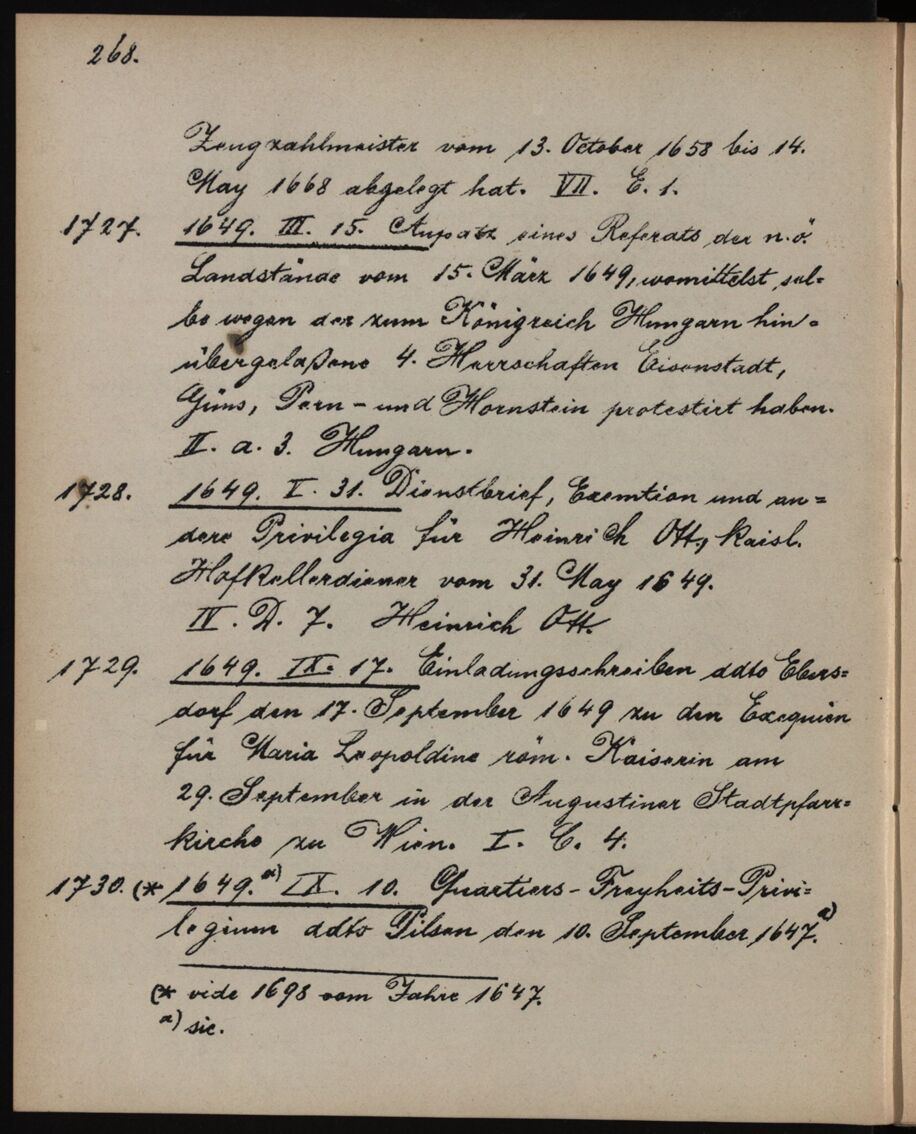 268.
Zeugzahlmeister vom 13. October 1658 bis 14.
May 1668 abgelegt hat. VII. E. 1.
1727. 1649. III. 15. Aufsatz eines Referats der n.ö.
Landstände vom 15. März 1649, womittelst sel=
be wegen der zum Königreich Hungarn hin=
übergelaßene 4. Herrschaften Eisenstadt,
Güns, Pern- und Hornstein protestirt haben.
II. a. 3. Hungarn.
1728. 1649. V. 31. Dienstbrief, Exemtion und an=
dere Privilegia für Heinrich Ott, kaisl.
Hofkellerdiener vom 31. May 1649.
IV. D. 7. Heinrich Ott.
1729. 1649. IX. 17. Einladungsschreiben ddto Ebers=
dorf den 17. September 1649 zu den Exequien
für Maria Leopoldine röm. Kaiserin am
29. September in der Augustiner Stadtpfarr=
kirche zu Wien. I. C. 4.
1730. (* 1649. a) IX. 10. Quartiers-Freyheits-Privi=
legium ddto Pilsen den 10. September 1647. a)
(* vide 1698 vom Jahre 1647.
a) sic.